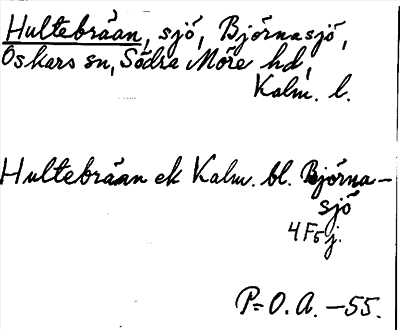 Hultebråan, sjö, Björnasjö,
Oskars sn, Södra Möre hd,
Kalm. l.
Hultebråan ek Kalm. bl. Björna-
sjö
4F5j.
P=O.A. -55.